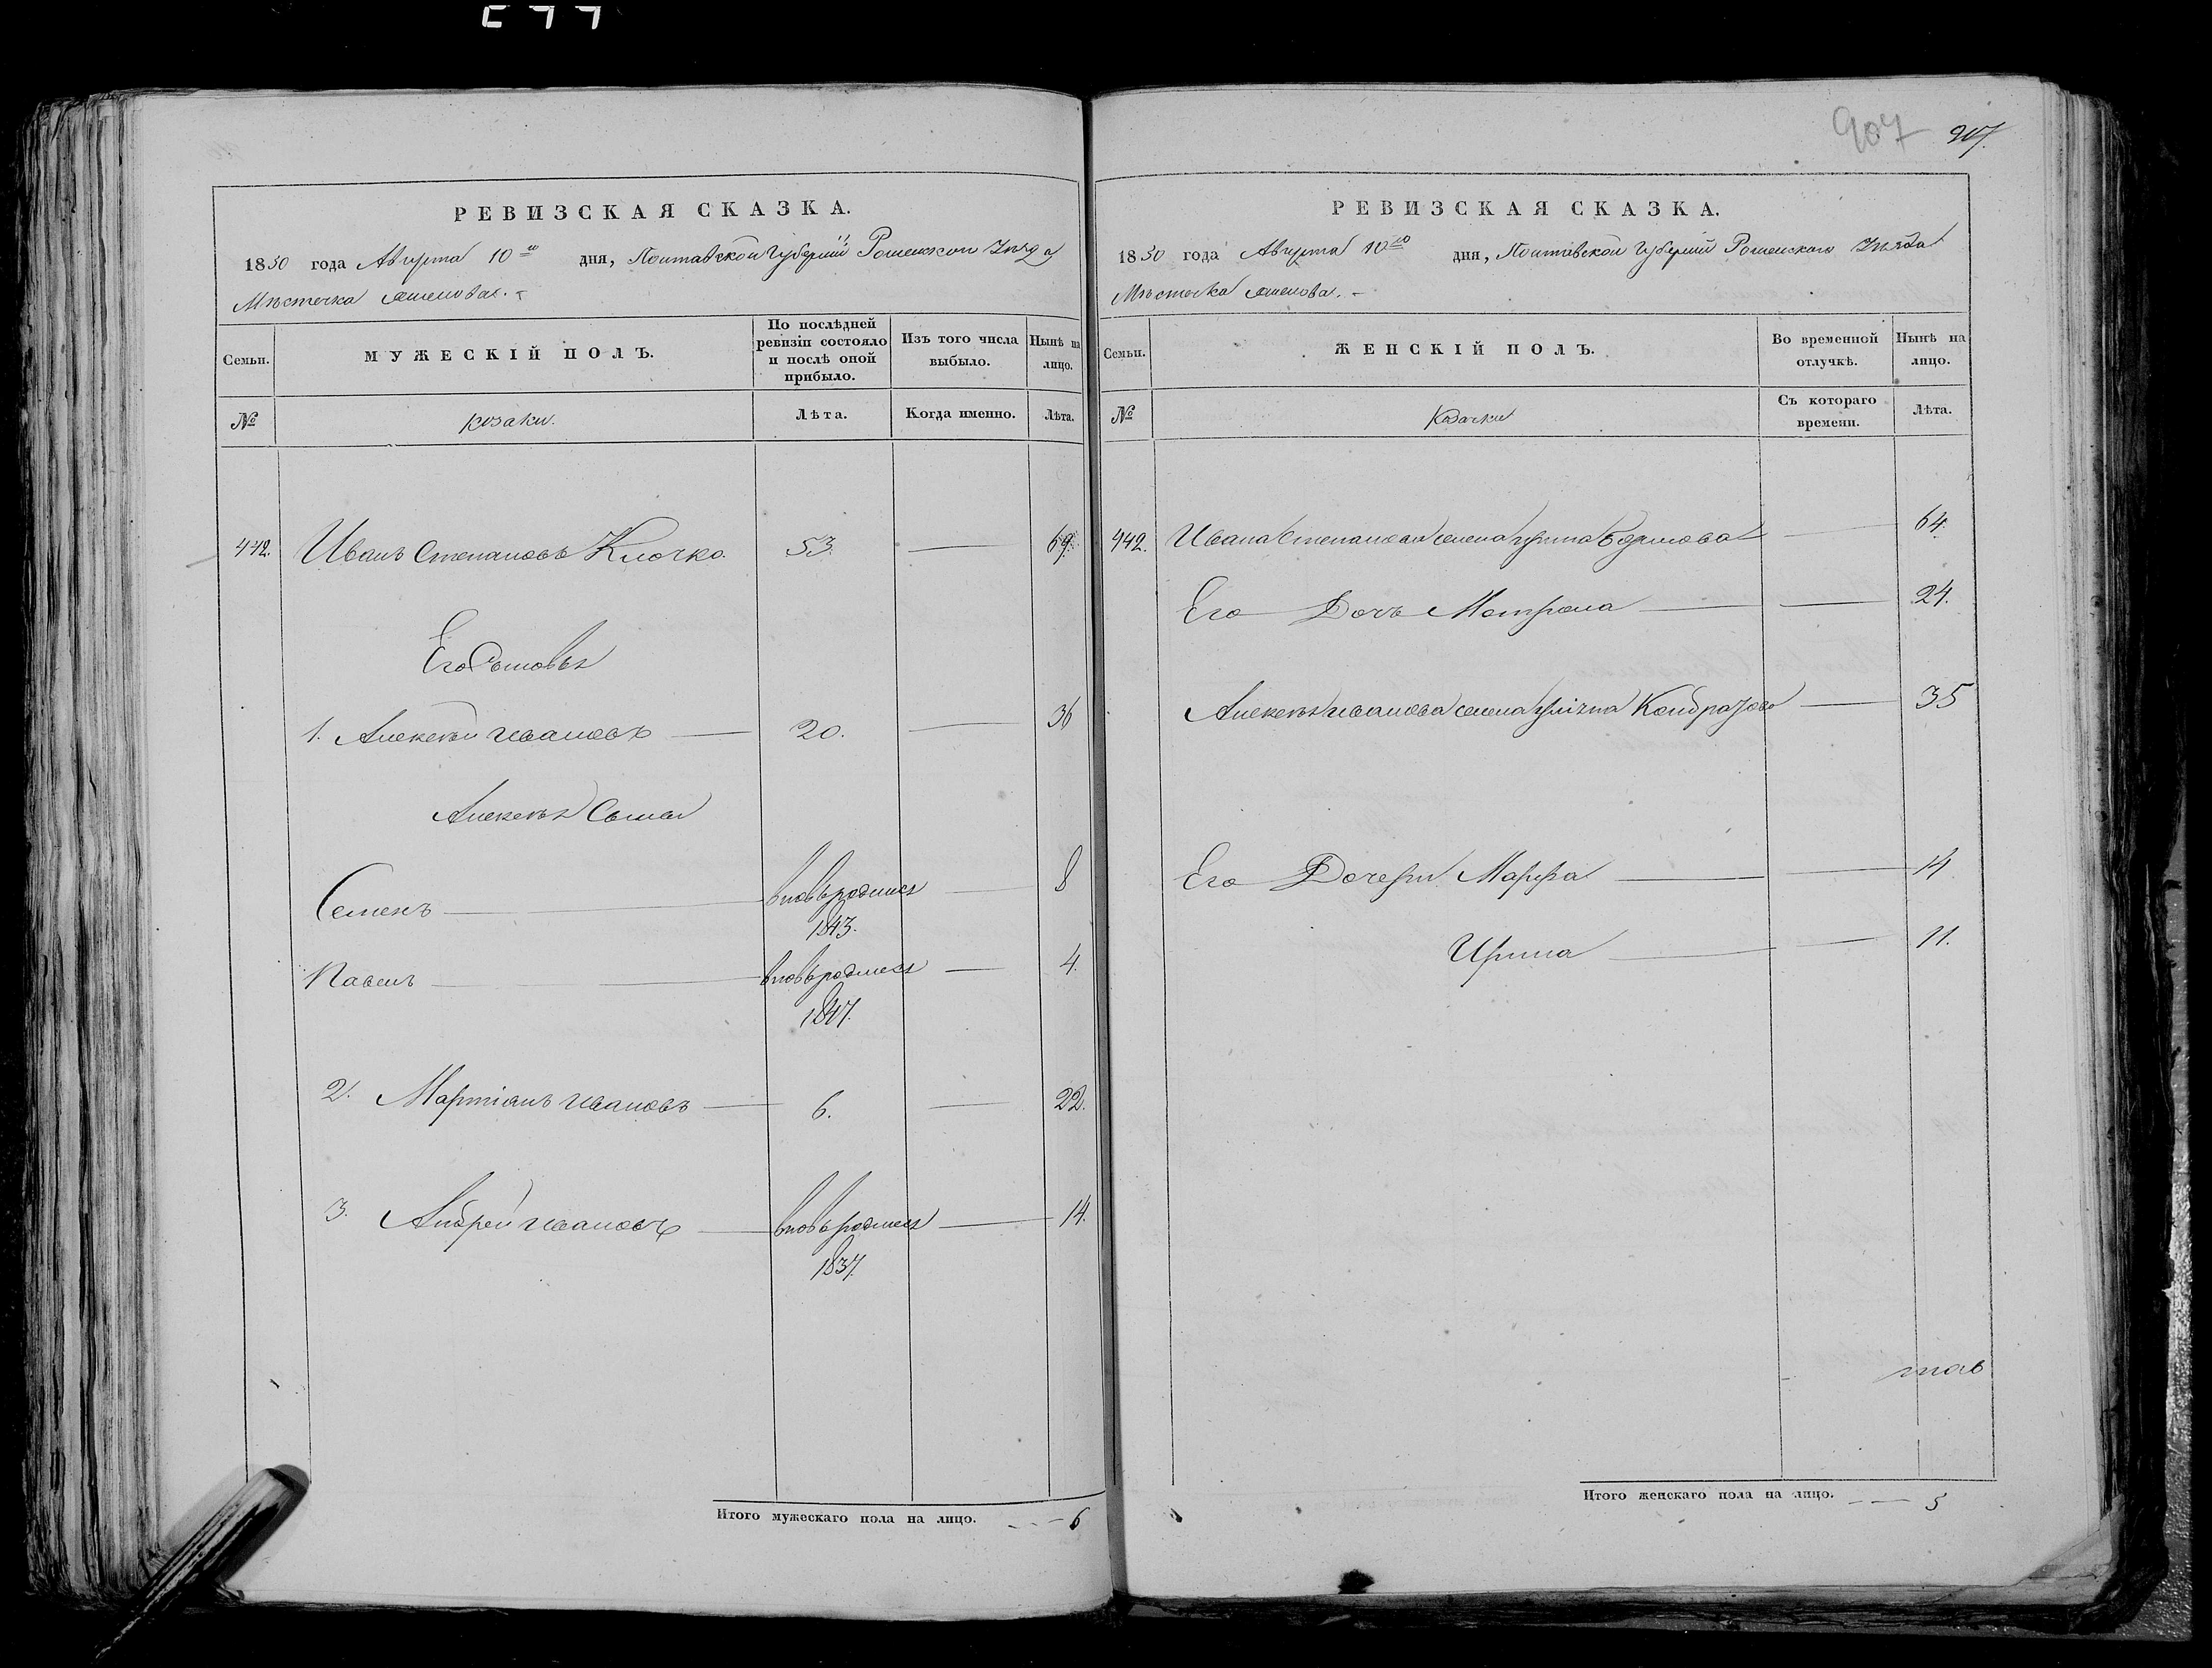 907 907.
РЕВИЗСКАЯ СКАЗКА.
1850 года Августа 10го дня, Полтавской Губерніи Роменскаго Уѣзда
Мѣстечка
Семьи.
МУЖЕСКІЙ ПОЛЪ.
По послѣдней ревизіи состояло и послѣ оной прибыло.
Изъ того числа выбыло.
Нынѣ на лицо.
№
козаки.
Лѣта.
Когда именно.
Лѣта.
442. Иванъ Степановъ Клочко. 53. — 69.
Его Сыновья
1. Алексѣй Ивановъ — 20. — 36
Алексѣя Сыны
Семенъ — вновьродился — 8
1843.
Павелъ — вновьродился — 4.
1847.
2. Мартіанъ Ивановъ — 6. — 22.
3. Андрей Ивановъ — вновьродился — 14.
1837.
Итого мужескаго пола на лицо. — 6
РЕВИЗСКАЯ СКАЗКА.
1850 года Августа 10го дня, Полтавской Губерніи Роменскаго Уѣзда
Мѣстечка
Семьи.
ЖЕНСКІЙ ПОЛЪ.
Во временной отлучкѣ.
Нынѣ на лицо.
№
Козачки
Съ котораго времени.
Лѣта.
442. Ивана Степанова жена — 64.
Его Дочь Мотрона — — 24.
Алексѣя Иванова жена Кондратова — 35
Его Дочери Марфа — — 14
Ирина — — 11.
Итого женскаго пола на лицо. — 5